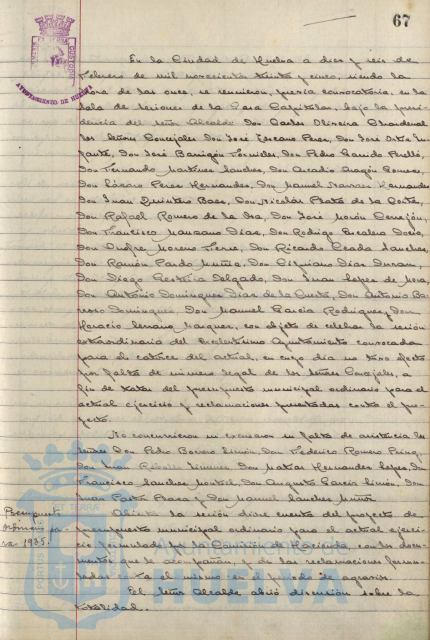 67
AYUNTAMIENTO DE HUELVA
En la Ciudad de Huelva a diez y seis de
Febrero de mil novecientos treinta y cinco, siendo la
hora de las once, se reunieron, previa convocatoria, en la
Sala de Sesiones de la Casa Capitular, bajo la presi-
dencia del Señor Alcalde Don Carlos Oliveira
los Señores Concejales Don José Lozano Perez, Don José Ortiz In-
fante, Don José Barrigón Don Pedro Garrido Perelló,
Don Fernando Martinez Sanchez, Don Arcadio Aragón Gomez,
Don Lázaro Perez Hernandez, Don Manuel Hernandez
Don Juan Quintero Baez, Don Nicolás de la Corte,
Don Rafael Romero de la Osa, Don José Morón Cerrejón,
Don Francisco Manzano Diaz, Don Rodrigo
Don Onofre Moreno Don Ricardo Sanchez,
Don Ramón Pardo Don Cipriano Diaz Duran,
Don Diego Delgado, Don Juan Lopez de
Don Antonio Dominguez Diaz de la Don Antonio Ba-
rroso Dominguez, Don Manuel Garcia Rodriguez y Don
Horacio con objeto de celebrar la sesión
extraordinaria del Excelentísimo Ayuntamiento convocada
para el catorce del actual, en cuyo dia no tuvo efecto
por falta de número legal de los Señores Concejales, a
fin de tratar del presupuesto municipal ordinario para el
actual ejercicio y reclamaciones presentadas contra el pro-
yecto.
No concurrieron ni excusaron su falta de asistencia los
señores Don Pedro Borrero Limón, Don Federico Romero
Don Juan Jimenez, Don Matias Hernandez Lopez, Don
Francisco Sanchez Don Augusto Garcia Limón, Don
Juan y Don Manuel Sanchez
Presupuesto
ordinario pa-
ra 1935.
Abierta la sesión dióse cuenta del proyecto de
presupuesto municipal ordinario para el actual ejerci-
cio formulado por la Comisión de Hacienda, con los docu-
mentos que le acompañan, y de las reclamaciones formu-
ladas contra el mismo en el periodo de agravios.
El Señor Alcalde abrió discusión sobre la
totalidad.
Ayuntamiento de
HUELVA